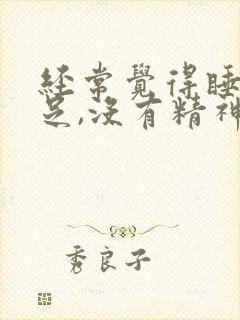 經常覺得睡
足,沒有精神
秀良子